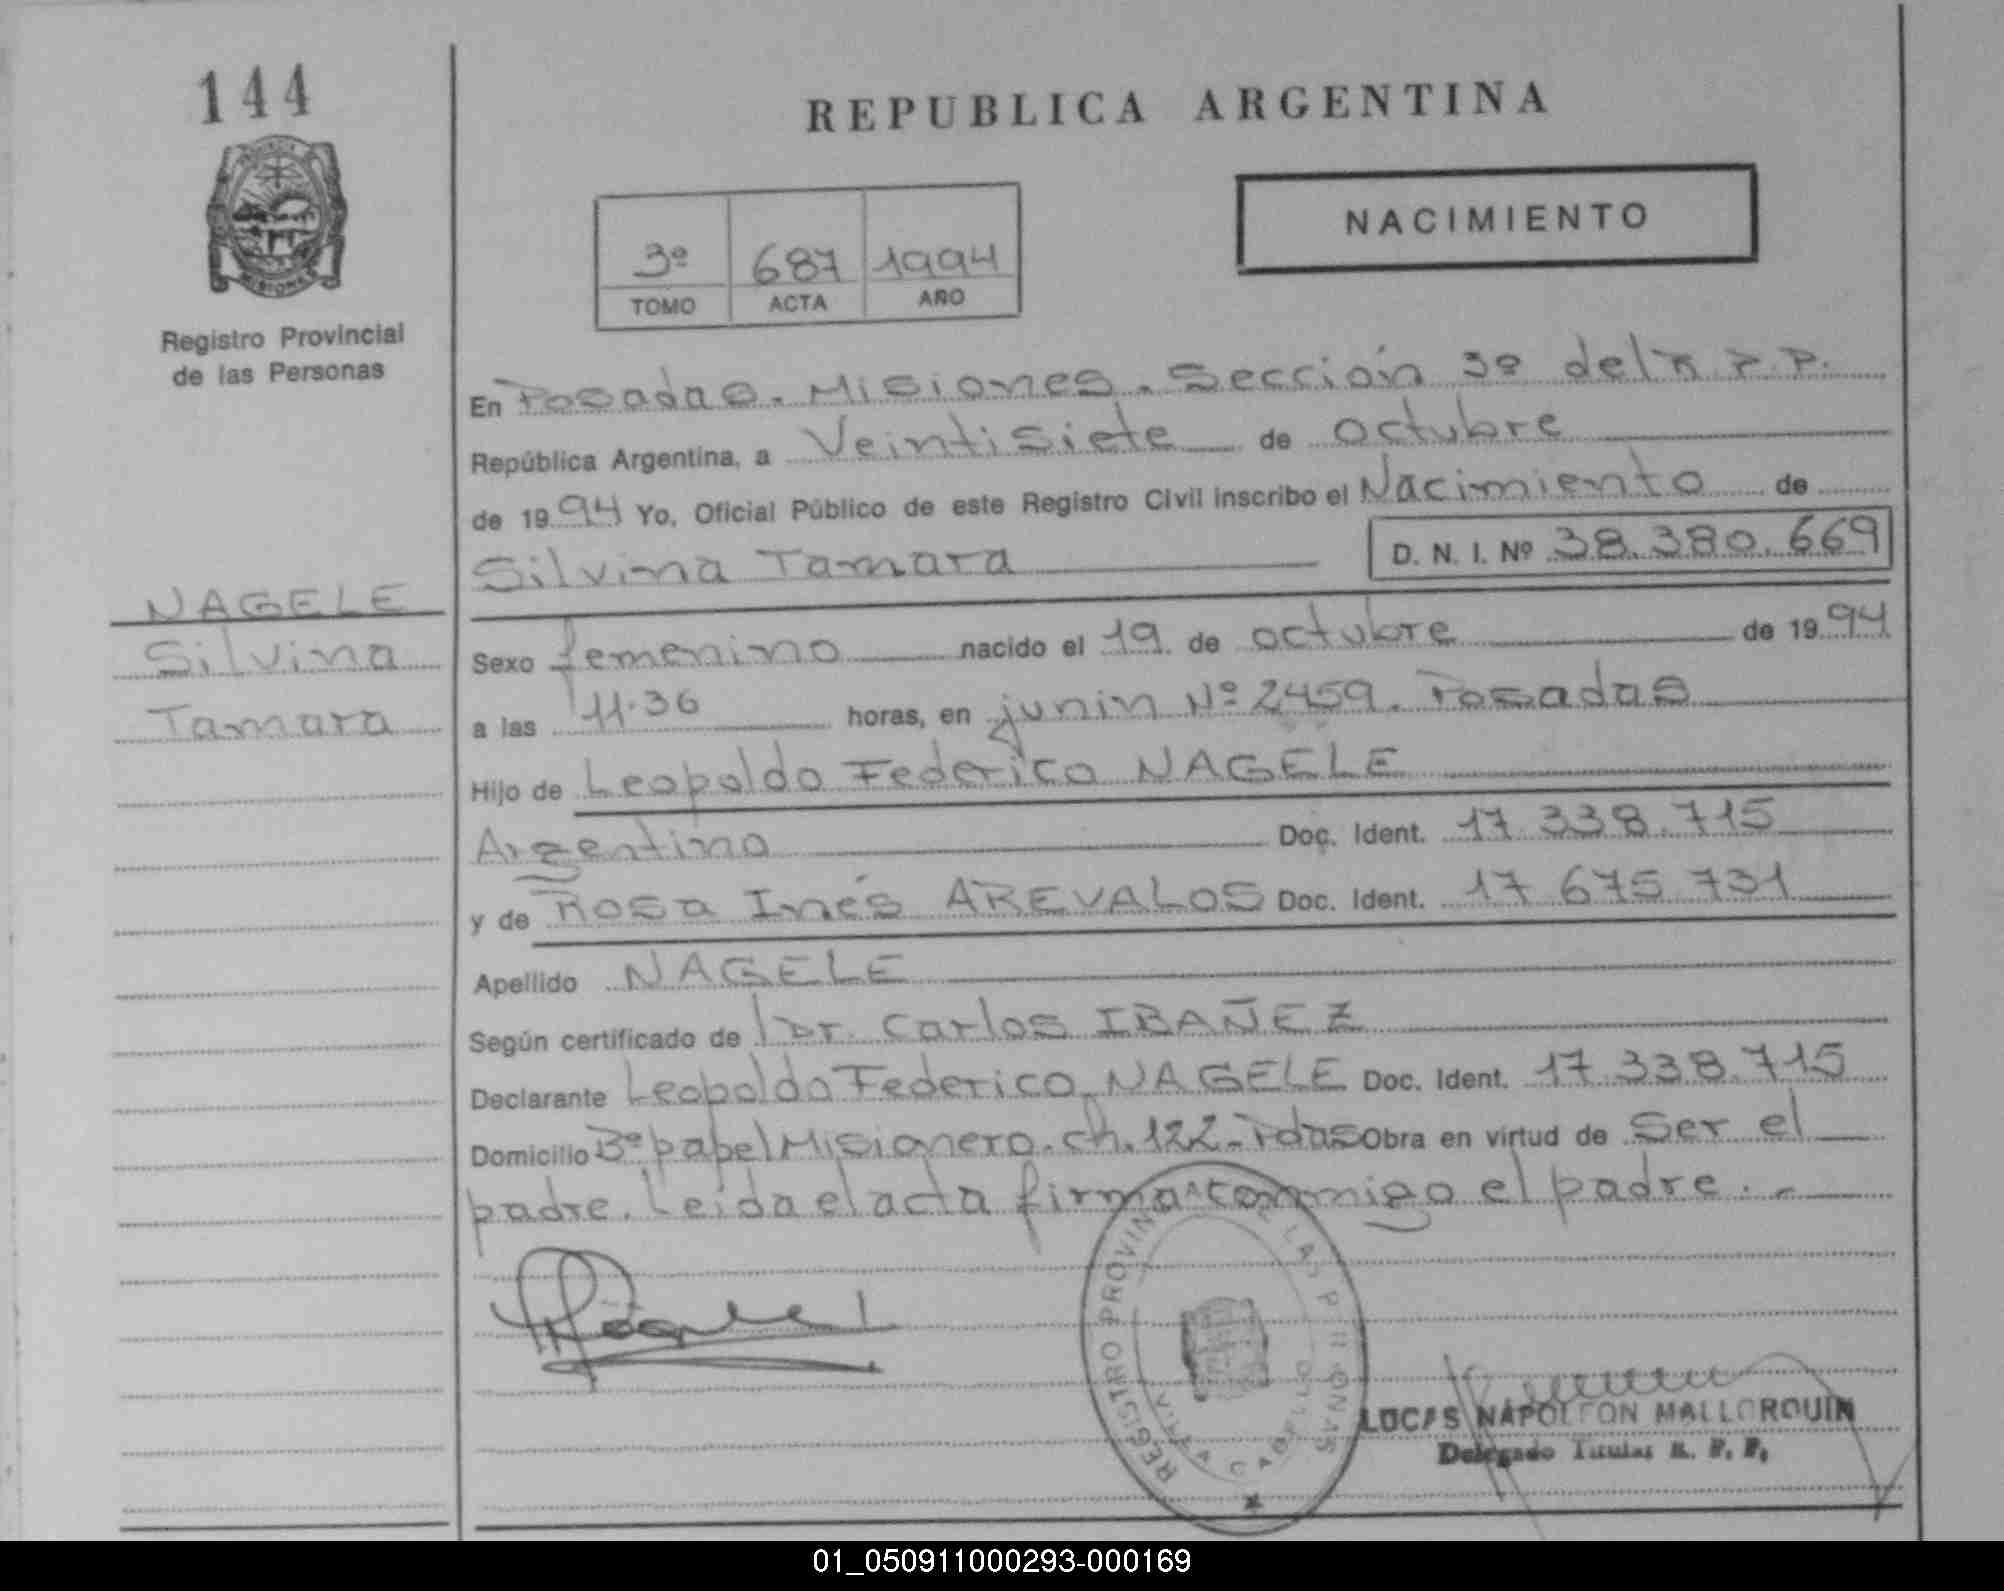 144
REPUBLICA ARGENTINA
NACIMIENTO
3º 687 1994
TOMO ACTA AÑO
Registro Provincial
de las Personas
En Posadas. Misiones. Sección 3º del R.P.P.
República Argentina, a Veintisiete de octubre
de 1994 Yo, Oficial Público de este Registro Civil inscribo el Nacimiento de
Silvina Tamara D. N. I. Nº 38.380.669
NAGELE
Silvina
Tamara
Sexo femenino nacido el 19 de octubre de 1994
a las 11.36 horas, en junin Nº 2459. Posadas
Hijo de Leopoldo Federico NAGELE
Argentino Doc. Ident. 17 338.715
y de Rosa Inés AREVALOS Doc. Ident. 17 675 731
Apellido NAGELE
Según certificado de Dr. Carlos IBAÑEZ
Declarante Leopoldo Federico NAGELE Doc. Ident. 17 338.715
Domicilio Bº papel Misionero. ch. 122 - Pdas Obra en virtud de ser el
padre. Leida el acta firma conmigo el padre. -
REGISTRO PROVIN LAS
LUCAS NAPOLEON MALLORQUIN
Delegado Titular R. P. P.
01_050911000293-000169